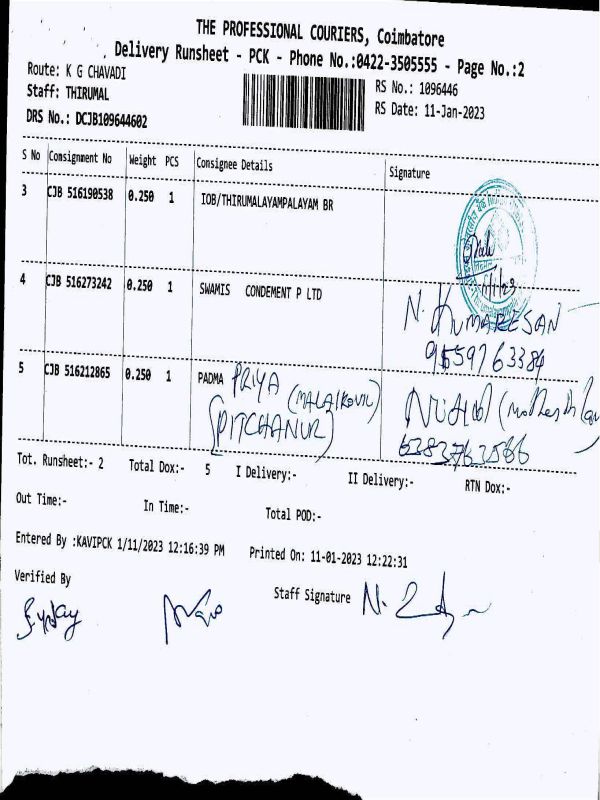 THE PROFESSIONAL COURIERS, Coimbatore
Delivery Runsheet - PCK - Phone No.:0422-3505555 - Page No.:2
Route: K G CHAVADI
RS No.: 1096446
Staff: THIRUMAL
RS Date: 11-Jan-2023
DRS No.: DCJB109644602
S No Consignment No Weight PCS Consignee Details Signature
3 CJB 516190538 0.250 1 IOB/THIRUMALAYAMPALAYAM BR
11/1/23
4 CJB 516273242 0.250 1 SWAMIS CONDEMENT P LTD
N. KUMARESAN
9559763384
5 CJB 516212865 0.250 1 PADMA PRIYA (MALAIKOVIL)
(PITCHANUR)
6383763566
Tot. Runsheet:- 2 Total Dox:- 5 I Delivery:- II Delivery:- RTN Dox:-
Out Time:- In Time:- Total POD:-
Entered By :KAVIPCK 1/11/2023 12:16:39 PM Printed On: 11-01-2023 12:22:31
Verified By
Staff Signature